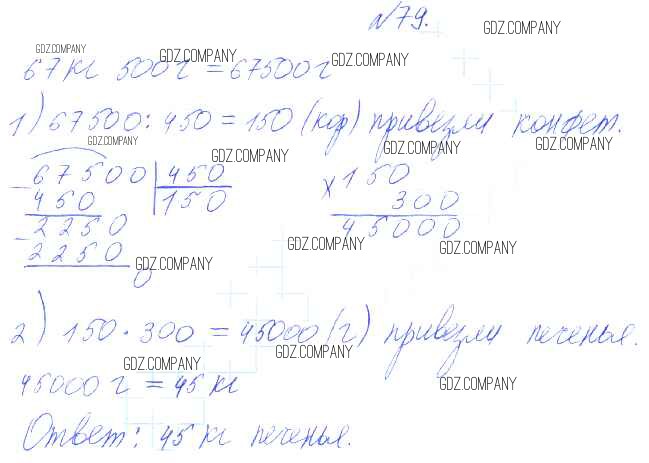 №79.
GDZ.COMPANY
GDZ.COMPANY GDZ.COMPANY GDZ.COMPANY
67 кг 500 г = 67500 г
1) 67500 : 450 = 150 (кор) привезли конфет.
GDZ.COMPANY GDZ.COMPANY GDZ.COMPANY GDZ.COMPANY
67500 | 450
- 450 | 150
2250
- 2250
0
× 150
300
45000
GDZ.COMPANY GDZ.COMPANY GDZ.COMPANY
2) 150 · 300 = 45000 (г) привезли печенья.
GDZ.COMPANY GDZ.COMPANY
45000 г = 45 кг
GDZ.COMPANY
Ответ: 45 кг печенья.